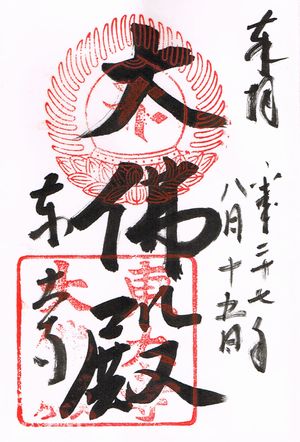 奉拝
平成二十七年
八月十五日
大佛殿
東大寺
東大寺
大佛殿